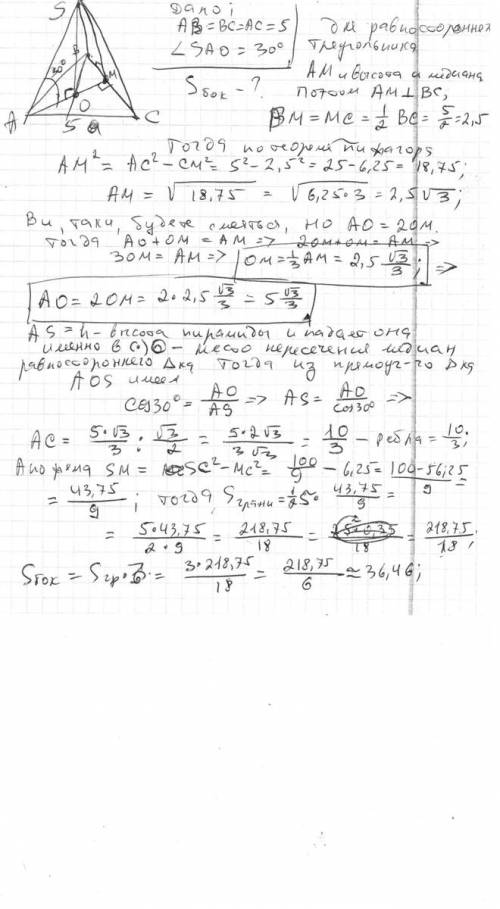 S
Дано;
AB=BC=AC=5
∠SAO=30°
Sбок - ?
30°
B
A
M
O
C
5
a
для равностороннего
треугольника
AM и высота и медиана
потому AM⊥BC,
BM=MC=1/2 BC=5/2=2,5
Тогда по теореме пифагора
AM²=AC²-CM²=5²-2,5²=25-6,25=18,75;
AM=√18,75=√6,25·3=2,5√3;
Вы, таки, будете смеяться, но AO=2OM.
Тогда AO+OM=AM=> 2OM+OM=AM=>
3OM=AM=> OM=1/3AM=2,5 √3/3; =>
AO=2OM=2·2,5 √3/3=5 √3/3
AS=h-высота пирамиды и падает она
именно в (·)O - место пересечения медиан
равностороннего Δка Тогда из прямоуг-го Δка
AOS имеем
cos30°=AO/AS=> AS=AO/cos30° =>
AC=5·√3/3:√3/2=5·2√3/3√3=10/3-ребра=10/3;
SM= SC²-MC²=100/9-6,25=100-56,25/9=
=43,75/9; тогда Sграни=1/2 5·43,75/9=
=5·43,75/2·9=218,75/18= =218,75/18;
Sбок=Sгр·3=3·218,75/18=218,75/6≈36,46;